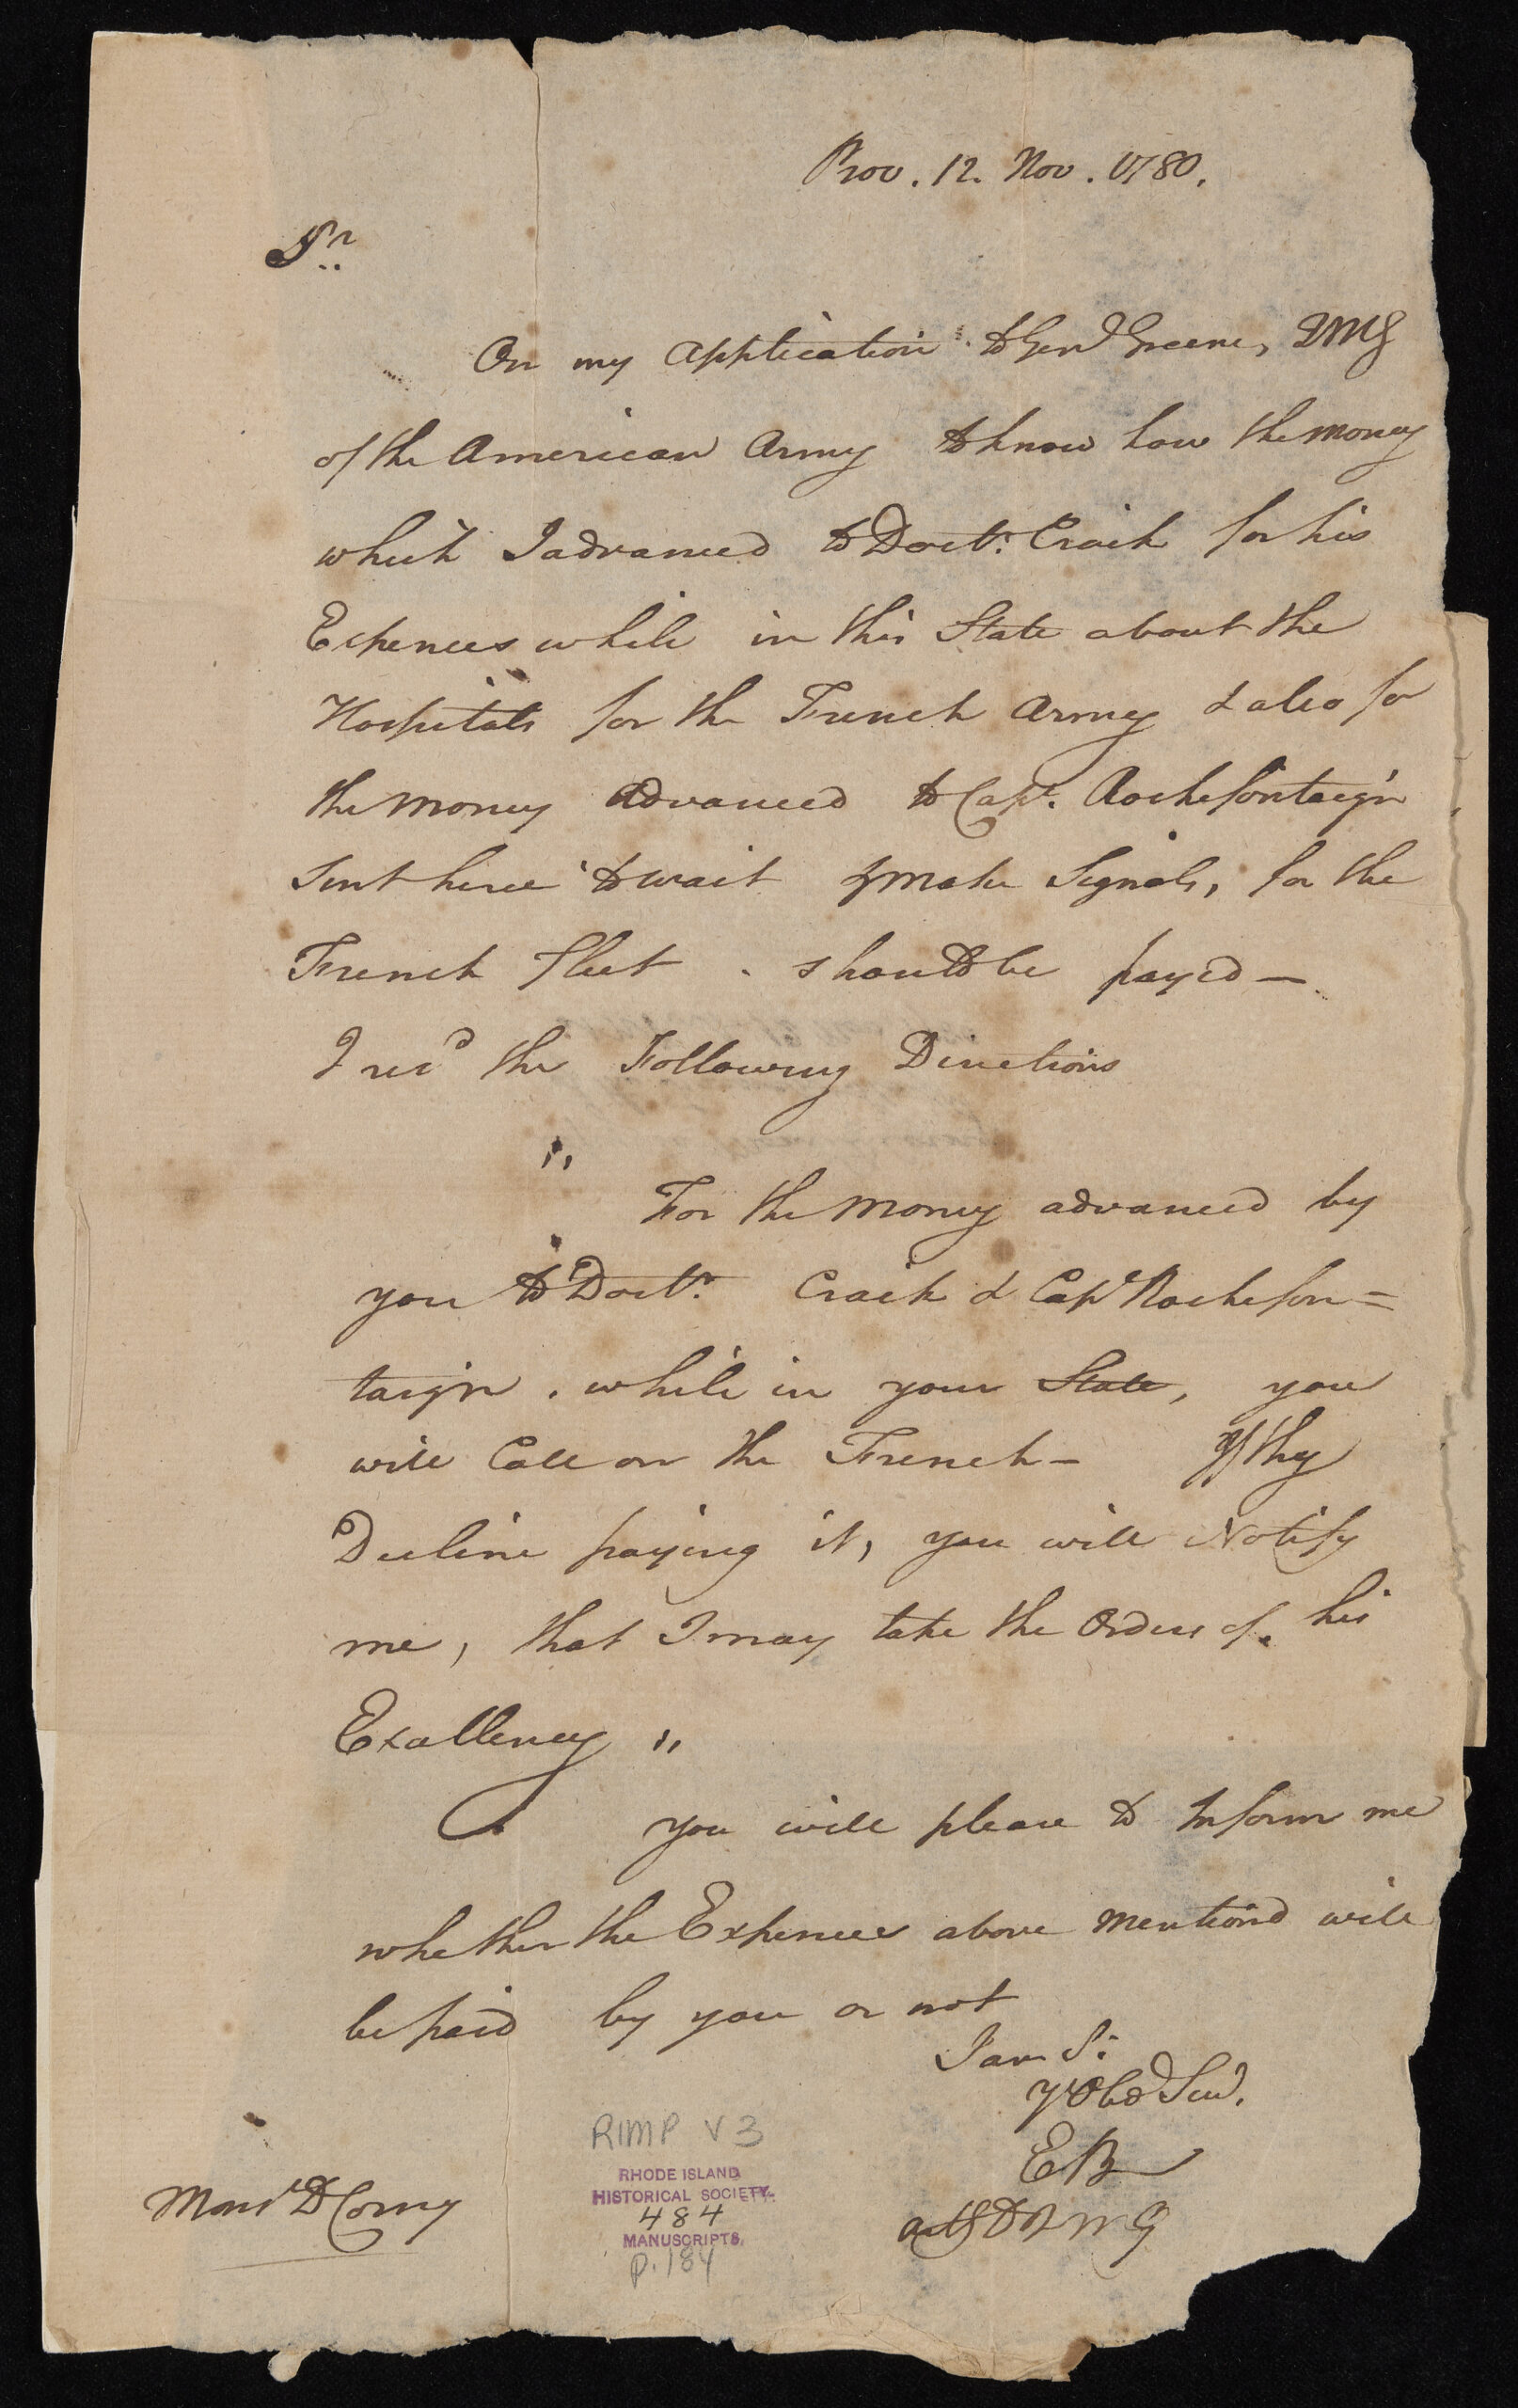 Prov. 12. Nov. 1780.
Sr
On my Application to Genl Greene, QMG
of the American Army to know how the money
which I advanced to Doctr. Craik for his
Expences while in this State about the
Hospitals for the French Army & also for
the money advanced to Capt. Rochefontaign
sent here to wait & make Signals, for the
French fleet . should be payed —
I recd the Following Directions
" For the money advanced by
you to Doctr. Craik & Capt Rochefon=
taign . while in your State, you
will Call on the French — If they
Decline paying it, you will Notify
me, that I may take the Orders of his
Excellency "
You will please to Inform me
whether the Expences above mentiond will
be paid by you or not
I am Sr
yr Obd Servt.
EB
actg D Q M G
Monsr D Corny
RIMP V 3
RHODE ISLAND
HISTORICAL SOCIETY.
484
MANUSCRIPTS.
p. 184